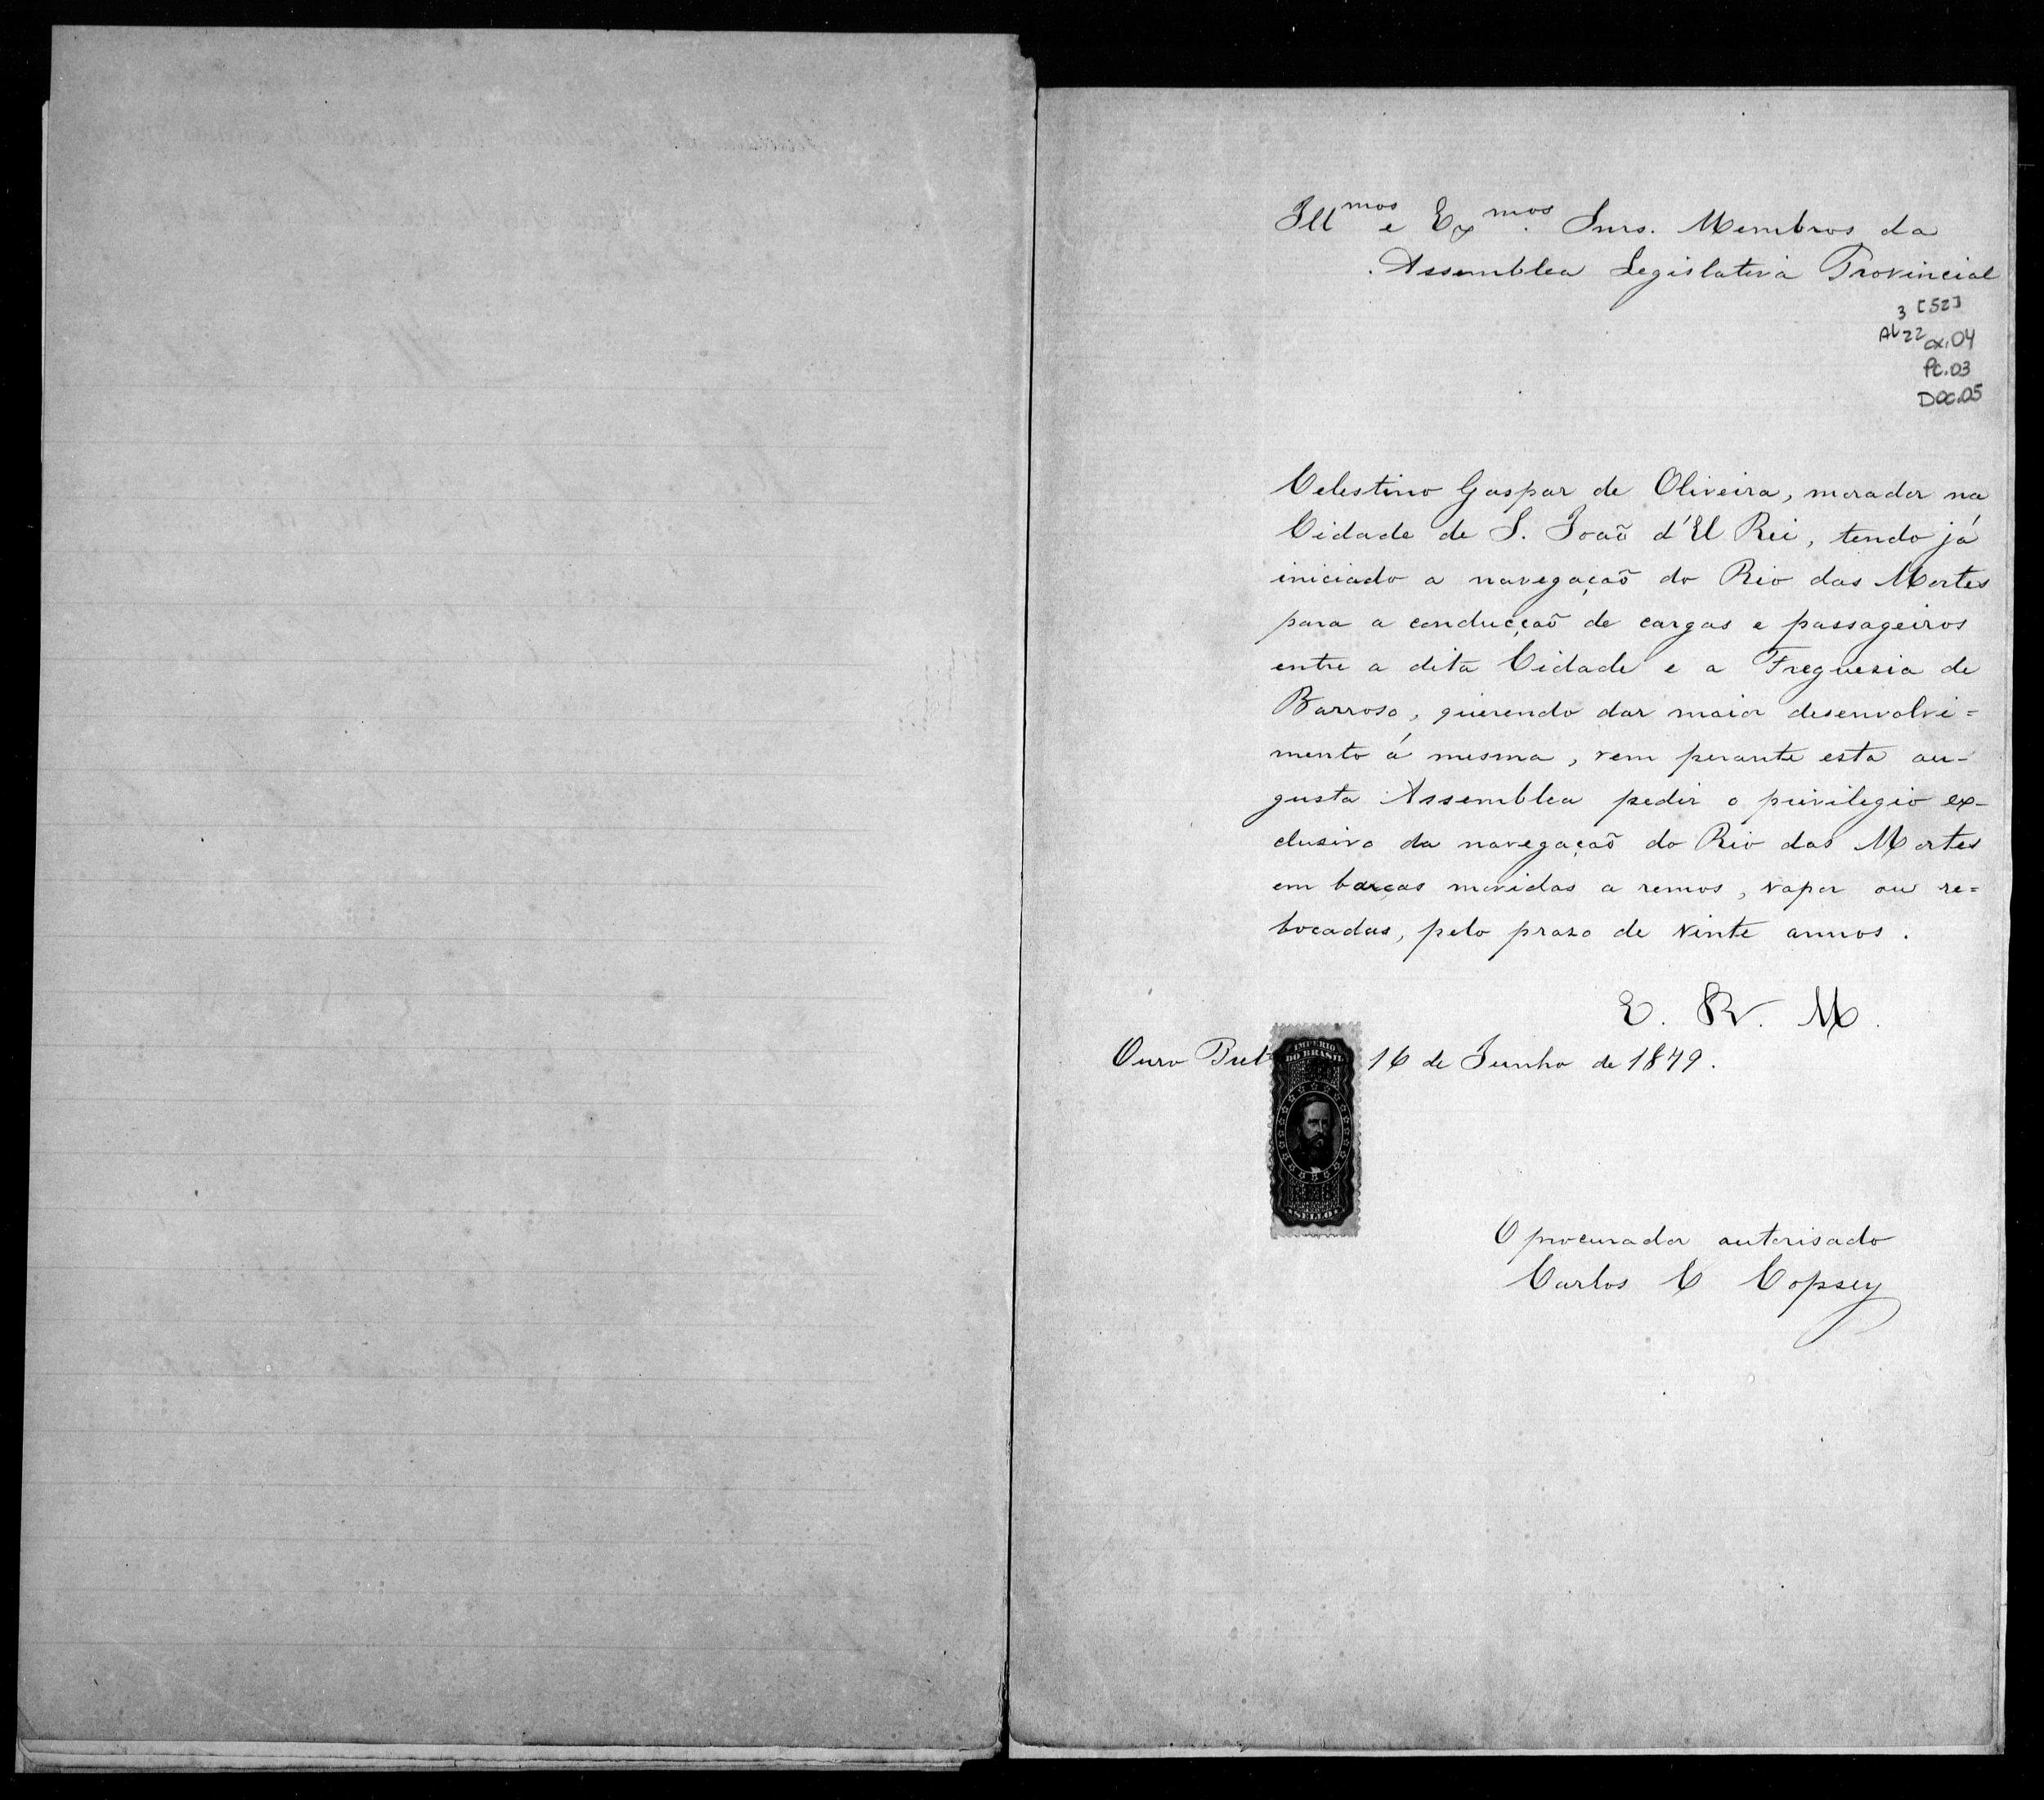 Illmos e Exmos. Snrs. Membros da
Assemblea Legislativa Provincial
3 [52]
AL 22 cx.04
Pc.03
Doc.05
Celestino Gaspar de Oliveira, morador na
Cidade de S. João d'El Rei, tendo já
iniciado a navegação do Rio das Mortes
para a conducção de cargas e passageiros
entre a dita Cidade e a Freguezia de
Barroso, querendo dar maior desenvolvi=
mento á mesma, vem perante esta au-
gusta Assemblea pedir o privilegio ex-
clusivo da navegação do Rio das Mortes
em barcas movidas a remos, vapor ou re=
bocadas, pelo prazo de vinte annos.
E. R. M.
Ouro Pret 16 de Junho de 1879.
IMPERIO
DO BRASIL
SELLO
O procurador autorisado
Carlos C Copsey